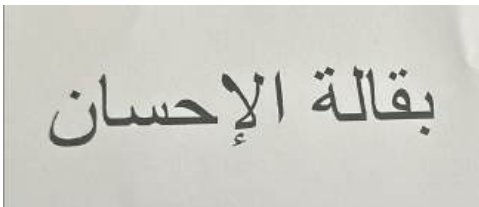 بقالة الإحسان